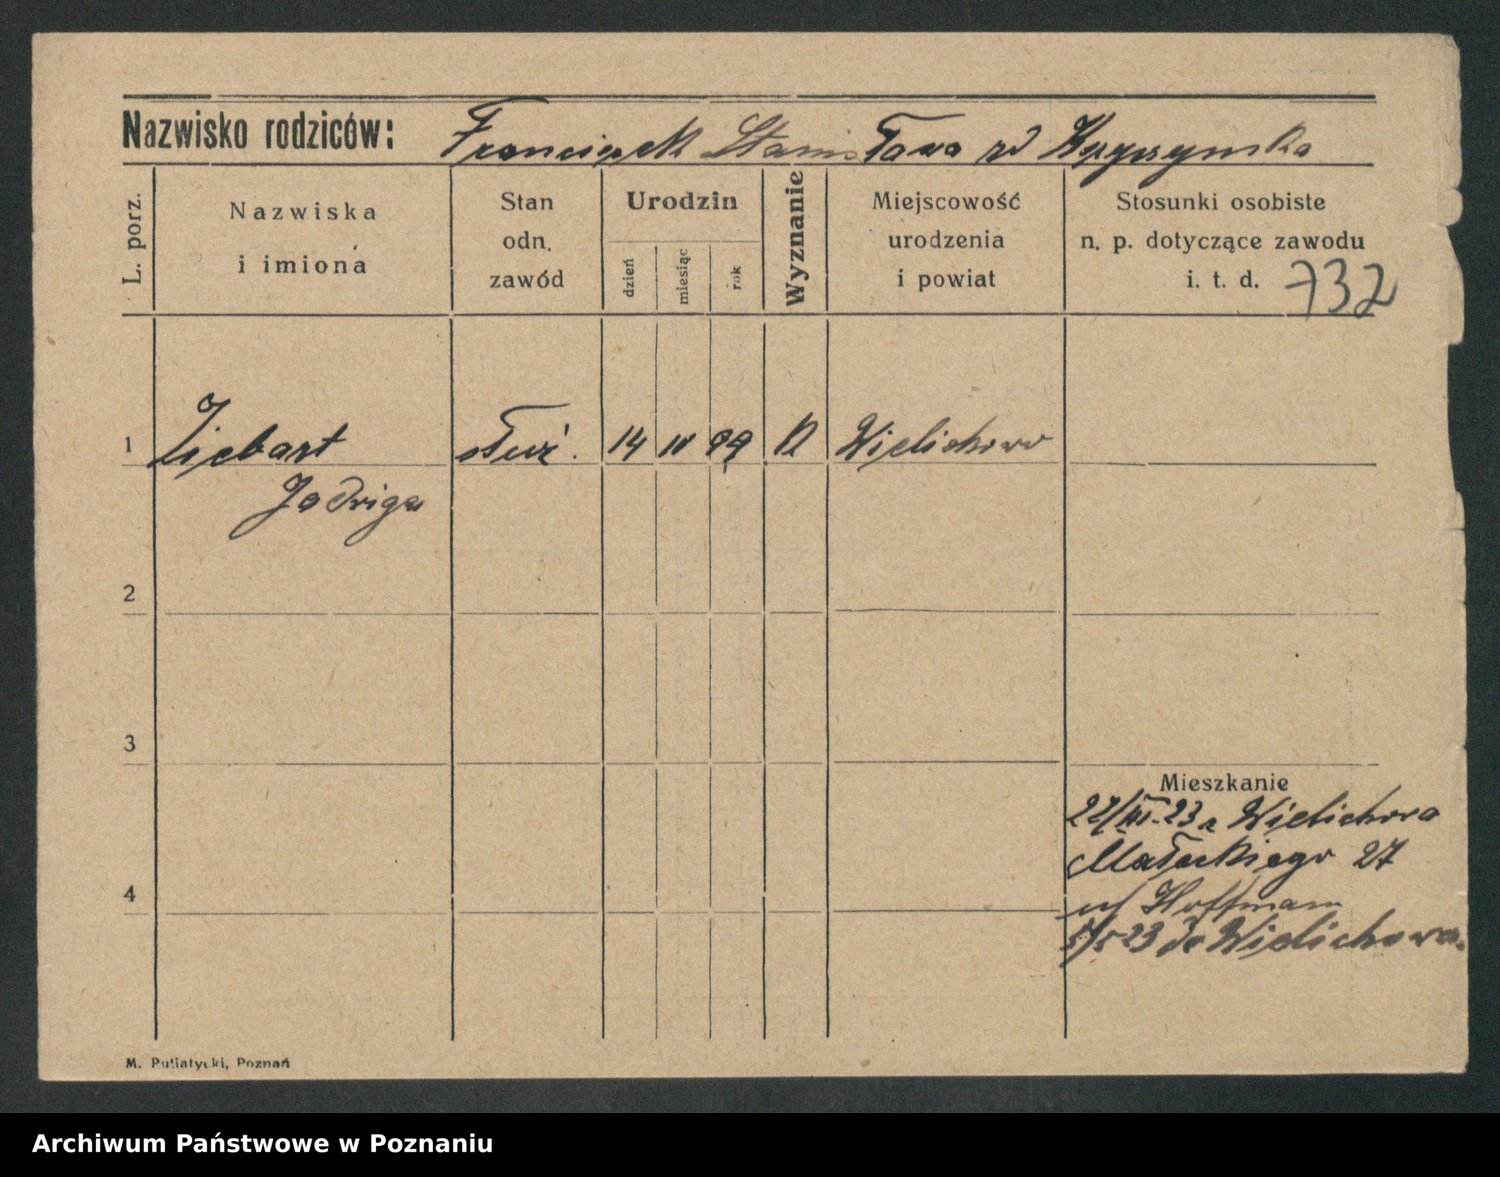 Nazwisko rodziców: Franciszek Stanisława zd
L. porz.
Nazwiska
i imiona
Stan
odn.
zawód
Urodzin
dzień
miesiąc
rok
Wyznanie
Miejscowość
urodzenia
i powiat
Stosunki osobiste
n. p. dotyczące zawodu
i. t. d. 732
1 Ziebart służ. 14 10 99 K Wielichowo
Jadwiga
2
3
Mieszkanie
22/III-23 z Wielichowa
Małeckiego 27
4
u/ Hoffmann
5/5 23 do Wielichowa.
M. Putiatycki, Poznań
Archiwum Państwowe w Poznaniu